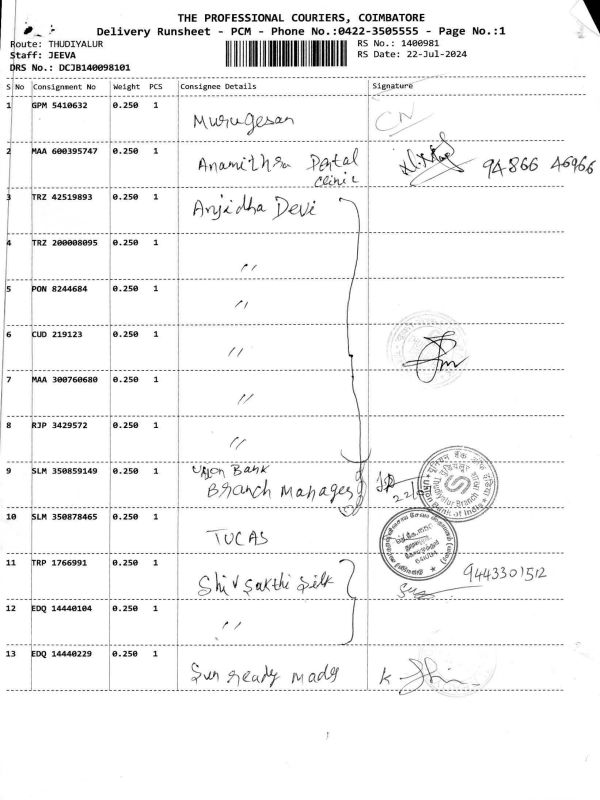 THE PROFESSIONAL COURIERS, COIMBATORE
Delivery Runsheet - PCM - Phone No.:0422-3505555 - Page No.:1
Route: THUDIYALUR
RS No.: 1400981
Staff: JEEVA
RS Date: 22-Jul-2024
DRS No.: DCJB140098101
S No Consignment No Weight PCS Consignee Details Signature
1 GPM 5410632 0.250 1 Murugesan CN
2 MAA 600395747 0.250 1 Anamithra Dental
Clinic 94866 46966
3 TRZ 42519893 0.250 1 Anjidha Devi
4 TRZ 200008095 0.250 1 "
5 PON 8244684 0.250 1 "
6 CUD 219123 0.250 1 "
7 MAA 300760680 0.250 1 "
8 RJP 3429572 0.250 1 "
9 SLM 350859149 0.250 1 Union Bank
Branch Manager 22/
यूनियन बैंक ऑफ इंडिया
Thudiyalur Branch
Union Bank of India
10 SLM 350878465 0.250 1 TUCAS
641034
11 TRP 1766991 0.250 1 Shiv Sakthi Silk 9443301512
12 EDQ 14440104 0.250 1 "
13 EDQ 14440229 0.250 1 Sun ready mady K